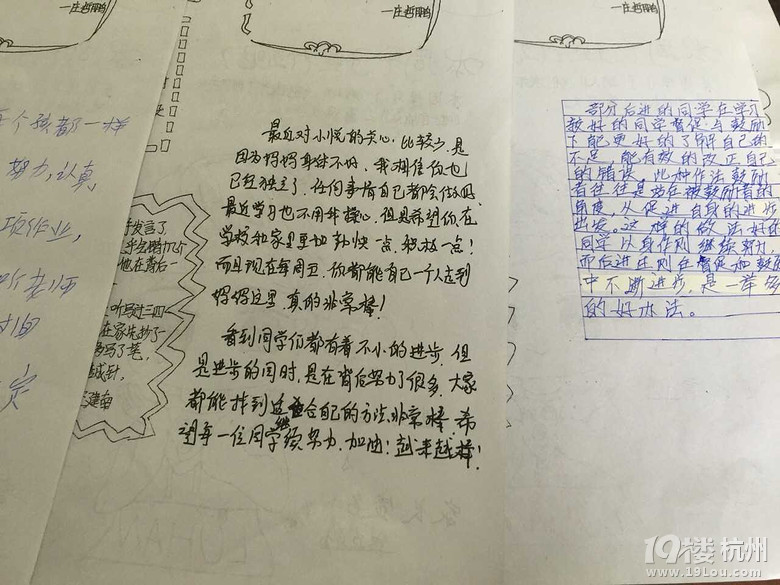 一庄哲鹏
一庄哲鹏
个孩都一样
努力,认真
项作业,
个老师
定
发言了
他在背后一
最近对小悦的关心,比较少,是
因为妈妈身体不好,我相信你也
已经独立了,任何事情自己都会做的,
最近学习也不用我操心,但是希望你在
学校和家里更加勤快一点,积极一点!
而且现在每周五,你都能自己一个人走到
妈妈这里,真的非常棒!
看到同学们都有着不小的进步,但
是进步的同时,是在背后努力了很多,大家
都能找到适合自己的方法,非常棒,希
望每一位同学继续努力,加油!越来越棒!
部分后进的同学在学习
较好的同学督促与鼓励
下能更好的了解自己的
不足,能有效的改正自己
的错误,此种作法鼓励
者往往是站在被鼓励者的
角度,从促进自身的进步
出发。这样的做法好的
同学以身作则继续努力,
而后进生则在督促和鼓励
中不断进步,是一举多
的好办法。
19楼杭州
www.19lou.com